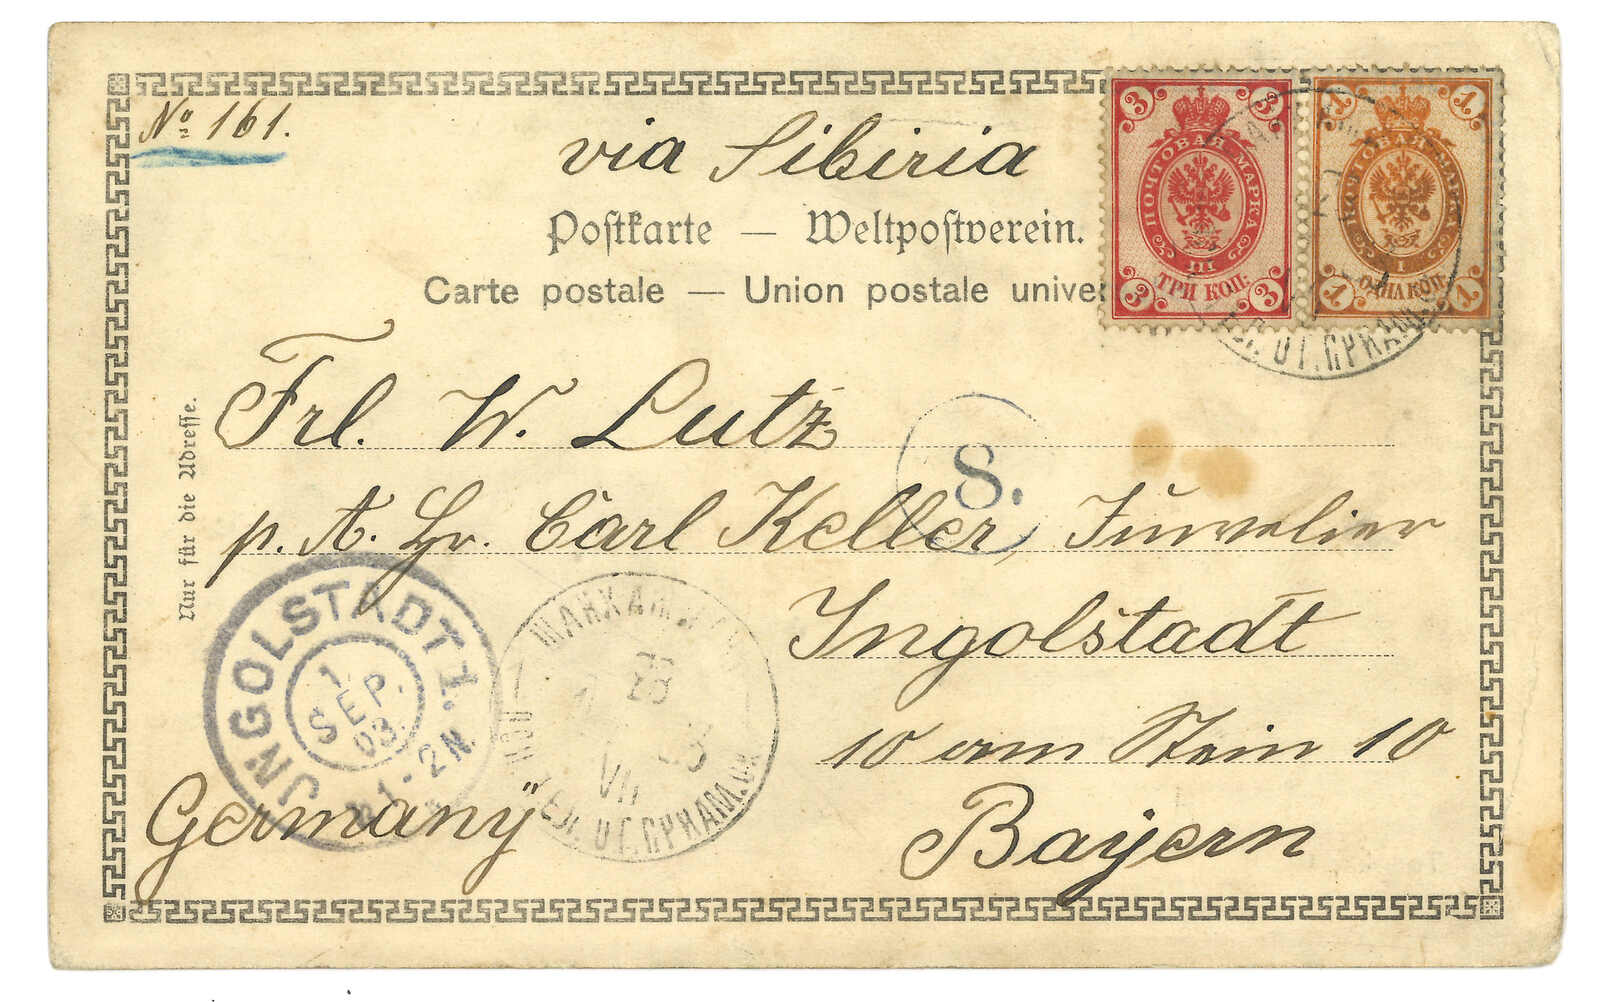 No 161.
via Sibiria
Postkarte — Weltpostverein.
Carte postale — Union postale unive
3 3
ПОЧТОВАЯ МАРКА
III
ТРИ КОП.
3 3
1 1
ПОЧТОВАЯ МАРКА
I
ОДНА КОП.
1 1
Nur für die Adresse.
Frl. W. Lutz
p. A. Hr. Carl Keller, Juwelier
Ingolstadt
10 am Stein 10
Bayern
Germany
8.
JNGOLSTADT I.
1.
SEP.
03.
1-2N.
23
VII
03